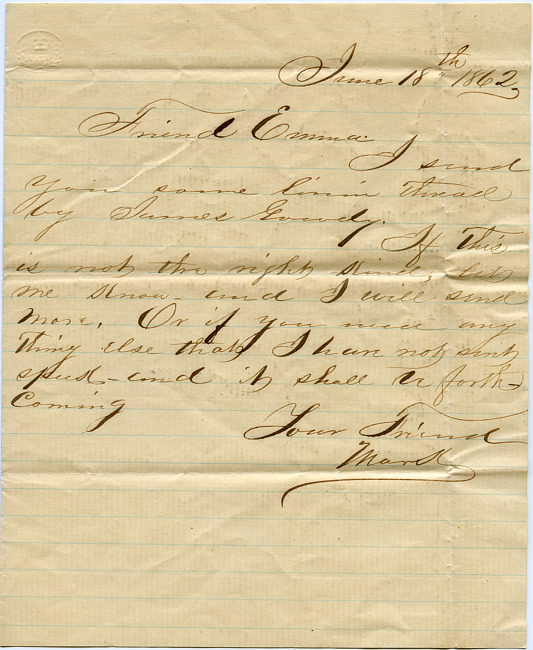 June 18th 1862
Friend Emma
I send
you some linin thread
by James Gowdy.
If this
is not the right kind, let
me know and I will send
more. Or if you need any
thing else that I have not sent
speak and it shall be forth-
coming
Your Friend
Mark